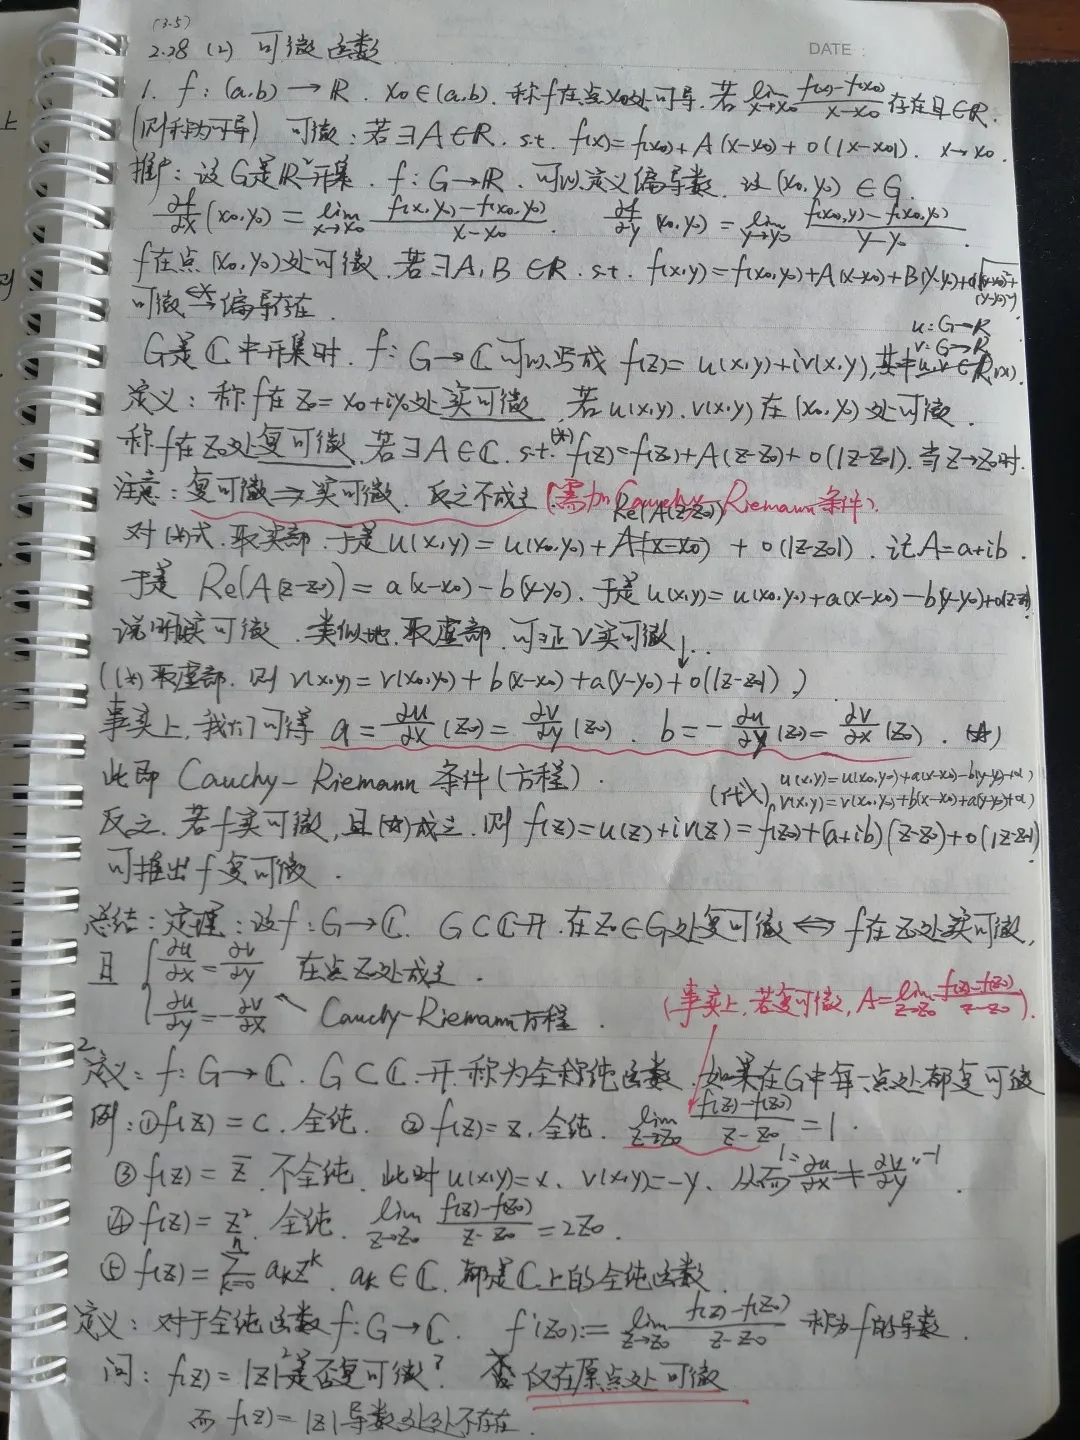 (3.5)
2.28 (2) 可微函数
DATE :
1. f : (a,b) → R . x0 ∈ (a,b). 称f在点x0处可导. 若 lim x→x0 f(x)-f(x0) / x-x0 存在且∈R.
(则称为可导) 可微 : 若∃A∈R. s.t. f(x)=f(x0)+A(x-x0)+o(|x-x0|). x→x0.
推广 : 设G是R²开集. f : G→R. 可以定义偏导数. 设(x0,y0)∈G.
∂f/∂x (x0,y0) = lim x→x0 f(x,y0)-f(x0,y0) / x-x0 . ∂f/∂y (x0,y0) = lim y→y0 f(x0,y)-f(x0,y0) / y-y0 .
f在点(x0,y0)处可微. 若∃A,B∈R. s.t. f(x,y)=f(x0,y0)+A(x-x0)+B(y-y0)+o(√(x-x0)²+(y-y0)²)
可微 ⇒ 偏导存在.
u : G→R
v : G→R
G是C中开集时. f : G→C可以写成 f(z)=u(x,y)+iv(x,y), 其中u,v∈R
定义 : 称f在z0=x0+iy0处实可微. 若u(x,y).v(x,y)在(x0,y0)处可微.
称f在z0处复可微. 若∃A∈C. s.t. (*) f(z)=f(z0)+A(z-z0)+o(|z-z0|). 当z→z0时.
注意 : 复可微⇒实可微. 反之不成立. (需加 Cauchy-Riemann条件).
对(*)式. 取实部. 于是u(x,y)=u(x0,y0)+Re(A(z-z0))+o(|z-z0|). 记A=a+ib.
于是 Re(A(z-z0))=a(x-x0)-b(y-y0). 于是u(x,y)=u(x0,y0)+a(x-x0)-b(y-y0)+o(|z-z0|)
说明u实可微. 类似地. 取虚部. 可证v实可微↓.
((*)取虚部. 则 v(x,y)=v(x0,y0)+b(x-x0)+a(y-y0)+o(|z-z0|) )
事实上, 我们可得 a=∂u/∂x(z0)=∂v/∂y(z0). b=-∂u/∂y(z0)=∂v/∂x(z0). (☆)
此即 Cauchy-Riemann 条件(方程).
(代入) u(x,y)=u(x0,y0)+a(x-x0)-b(y-y0)+o( )
v(x,y)=v(x0,y0)+b(x-x0)+a(y-y0)+o( )
反之. 若f实可微, 且(☆)成立. 则 f(z)=u(z)+iv(z)=f(z0)+(a+ib)(z-z0)+o(|z-z0|)
可推出f复可微.
总结 : 定理 : 设f : G→C. G⊂C开. 在z0∈G处复可微 ⇔ f在z0处实可微,
且 { ∂u/∂x=∂v/∂y 在点z0处成立.
∂u/∂y=-∂v/∂x ↖ Cauchy-Riemann方程.
(事实上, 若复可微, A=lim z→z0 f(z)-f(z0) / z-z0 ).
2. 定义 : f : G→C. G⊂C.开. 称为全纯函数. 如果在G中每一点处都复可微
例 : ①f(z)=c. 全纯. ②f(z)=z. 全纯. lim z→z0 f(z)-f(z0) / z-z0 =1.
③f(z)=z̄. 不全纯. 此时u(x,y)=x、v(x,y)=-y、从而 1=∂u/∂x≠∂v/∂y=-1.
④f(z)=z². 全纯. lim z→z0 f(z)-f(z0) / z-z0 =2z0.
⑤f(z)=∑ n k=0 akz^k. ak∈C. 都是C上的全纯函数.
定义 : 对于全纯函数f : G→C. f'(z0):=lim z→z0 f(z)-f(z0) / z-z0 称为f的导数.
问 : f(z)=|z|²是否复可微? 否 仅在原点处可微
而 f(z)=|z|导数处处不存在.